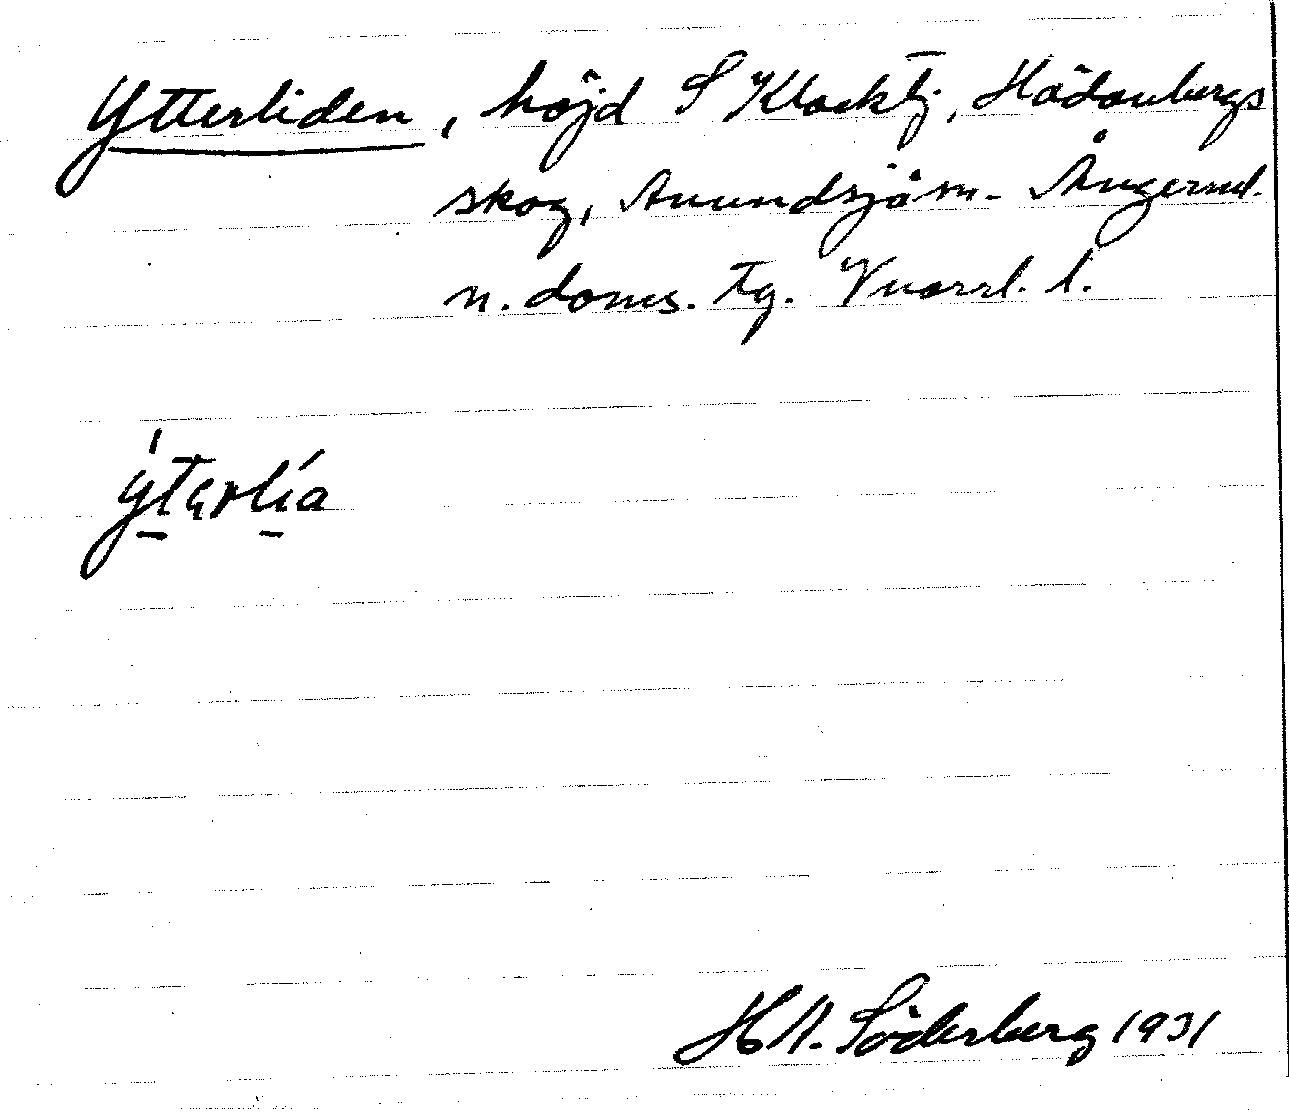 Ytterliden, höjd S Klocktj, Hädanbergs
skog, Anundsjö sn. Ångerml.
n. doms. tg.
ýtərlía
H A. Söderberg 1931